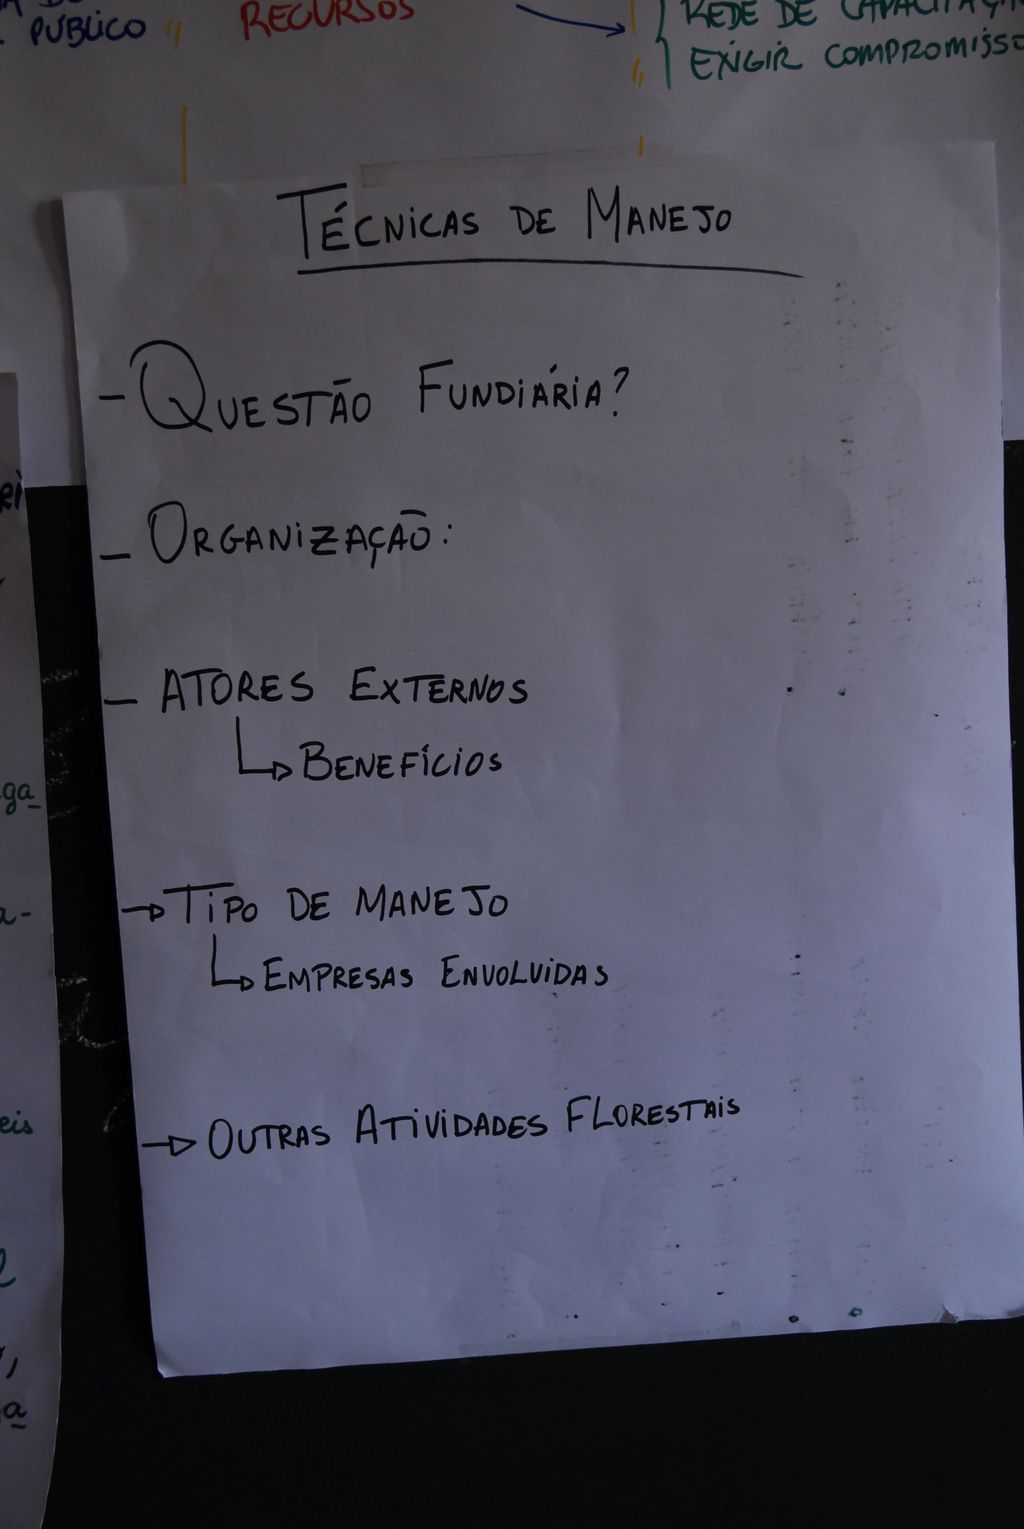 PÚBLICO
RECURSOS
REDE DE
EXIGIR COMPROMISSO
TÉCNICAS DE MANEJO
- QUESTÃO FUNDIÁRIA?
- ORGANIZAÇÃO:
- ATORES EXTERNOS
↳ BENEFÍCIOS
→ TIPO DE MANEJO
↳ EMPRESAS ENVOLVIDAS
→ OUTRAS ATIVIDADES FLORESTAIS